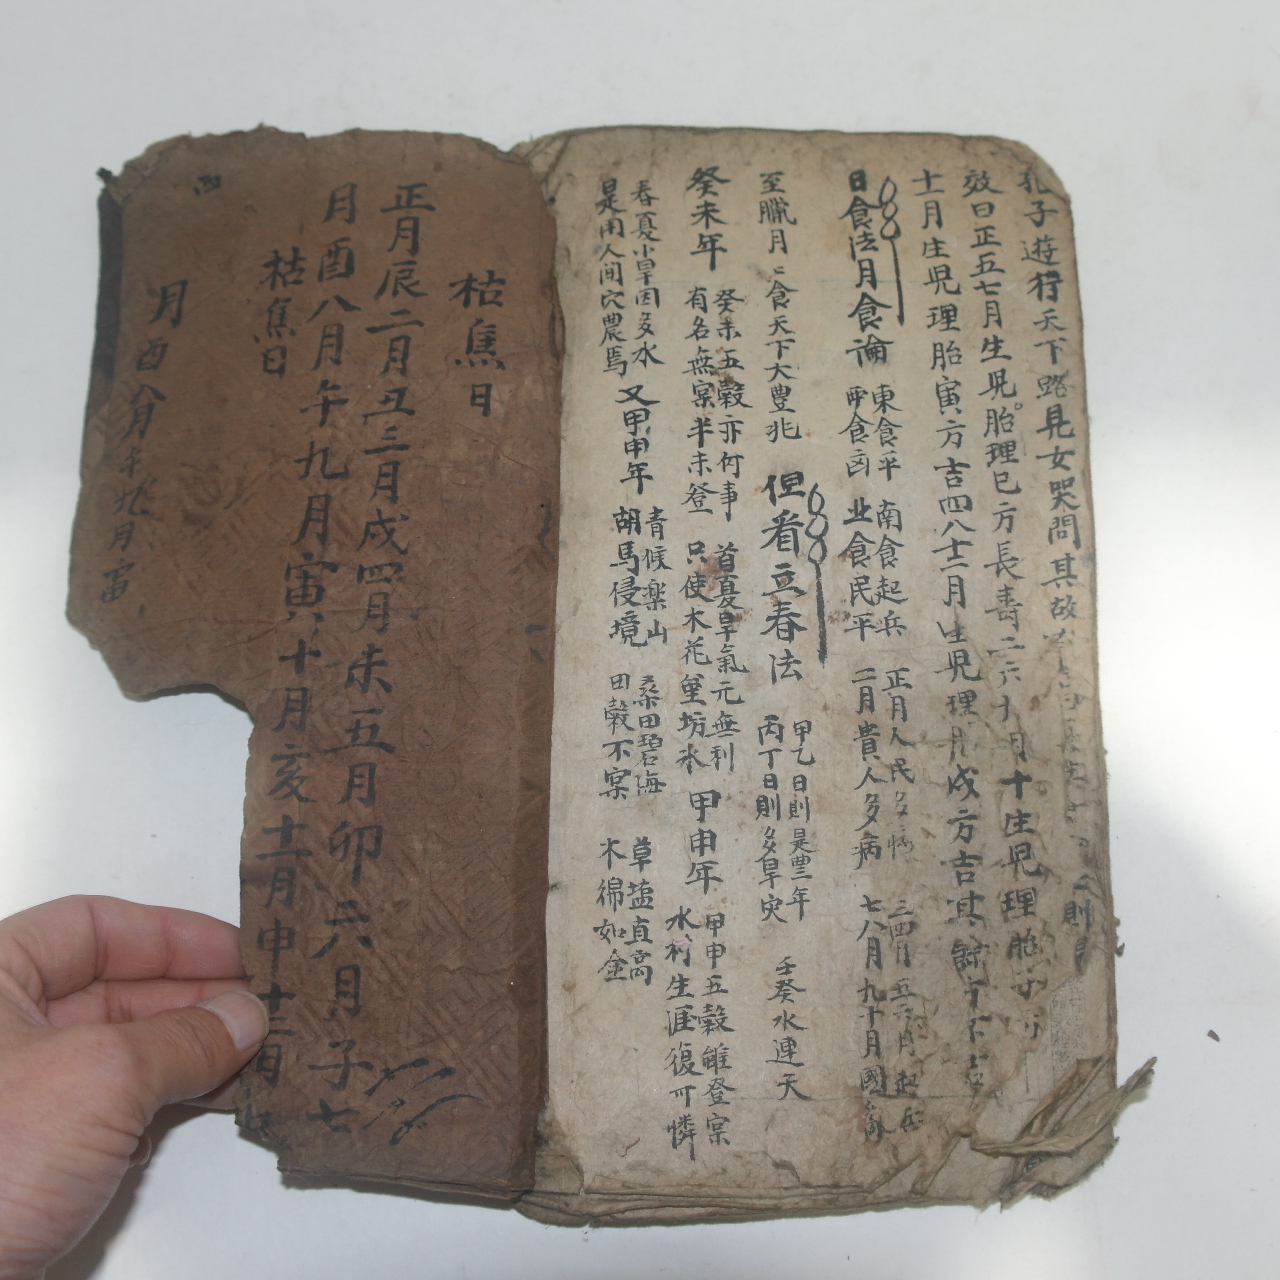 孔子遊行天下路見女哭問其故
效曰正五七月生児胎理巳方長壽二六十月十生児理胎
十月生児理胎寅方吉四八十二月生児理月戌方吉其餘方不吉
日食法月食論
東食平 南食起兵 正月人民多病 三四月五六月起兵
酉食凶 北食民平 二月貴人多病 七八月九十月國
至臘月月食天下大豊兆
但看立春法
甲乙日則是豊年
丙丁日則多旱灾
壬癸水連天
癸未年
癸未五穀亦何事 首夏旱氣元無利
有名無宲半未登 只使木花坊氷
甲申年
甲申五穀雖登宲
水村生涯復可憐
春夏小旱因多水
是用人間穴農馬
又甲申年
青候楽山 桑田碧海 草塩直高
胡馬侵境 田穀不宲 木綿如金
枯焦日
正月辰二月丑三月戌四月未五月卯六月子七
月酉八月午九月寅十月亥十一月申十二月
枯焦日
月酉八月午九月寅